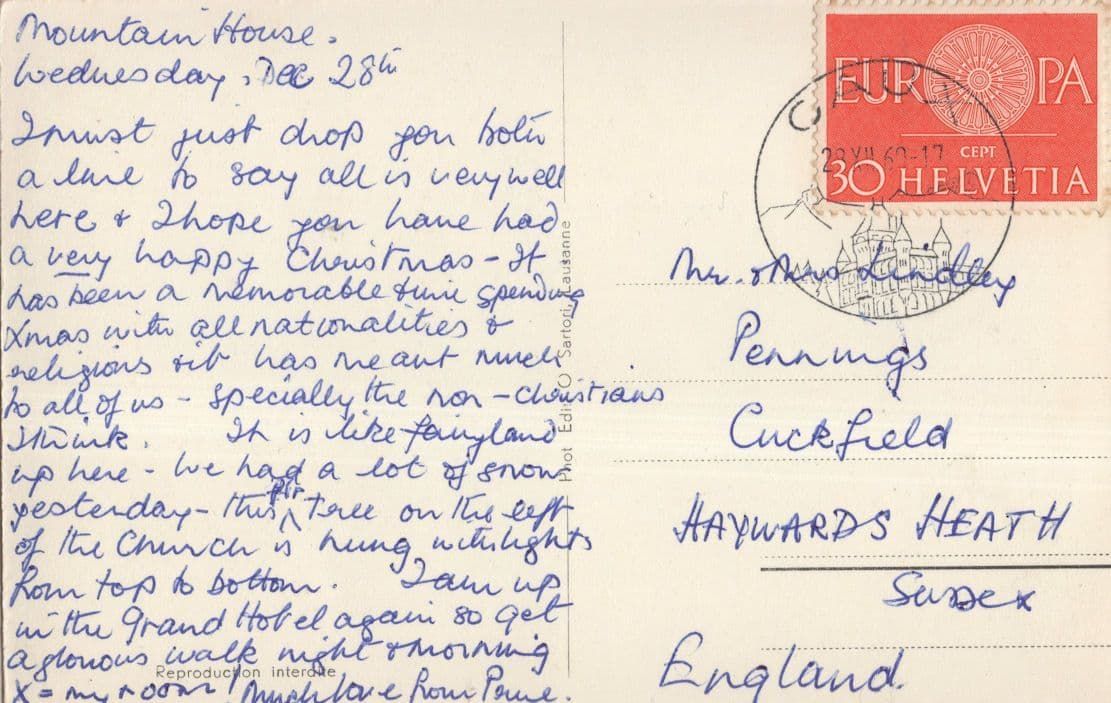 Mountain House.
Wednesday, Dec 28th
I must just drop you both
a line to say all is very well
here & I hope you have had
a very happy Christmas - It
has been a memorable time spending
Xmas with all nationalities &
religions & it has meant much
to all of us - specially the non-Christians
I think. It is like fairyland
up here - We had a lot of snow
yesterday - this fir tree on the left
of the Church is hung with lights
from top to bottom. I am up
in the Grand Hotel again so get
a glorious walk night & morning
X = my room! Much love from
Reproduction interdite
Phot Edit O Sartori, Lausanne
EUROPA
CEPT
30 HELVETIA
CAUX
28 XII 60-17
Mr. & Mrs Lindley
Pennings
Cuckfield
HAYWARDS HEATH
Sussex
England.